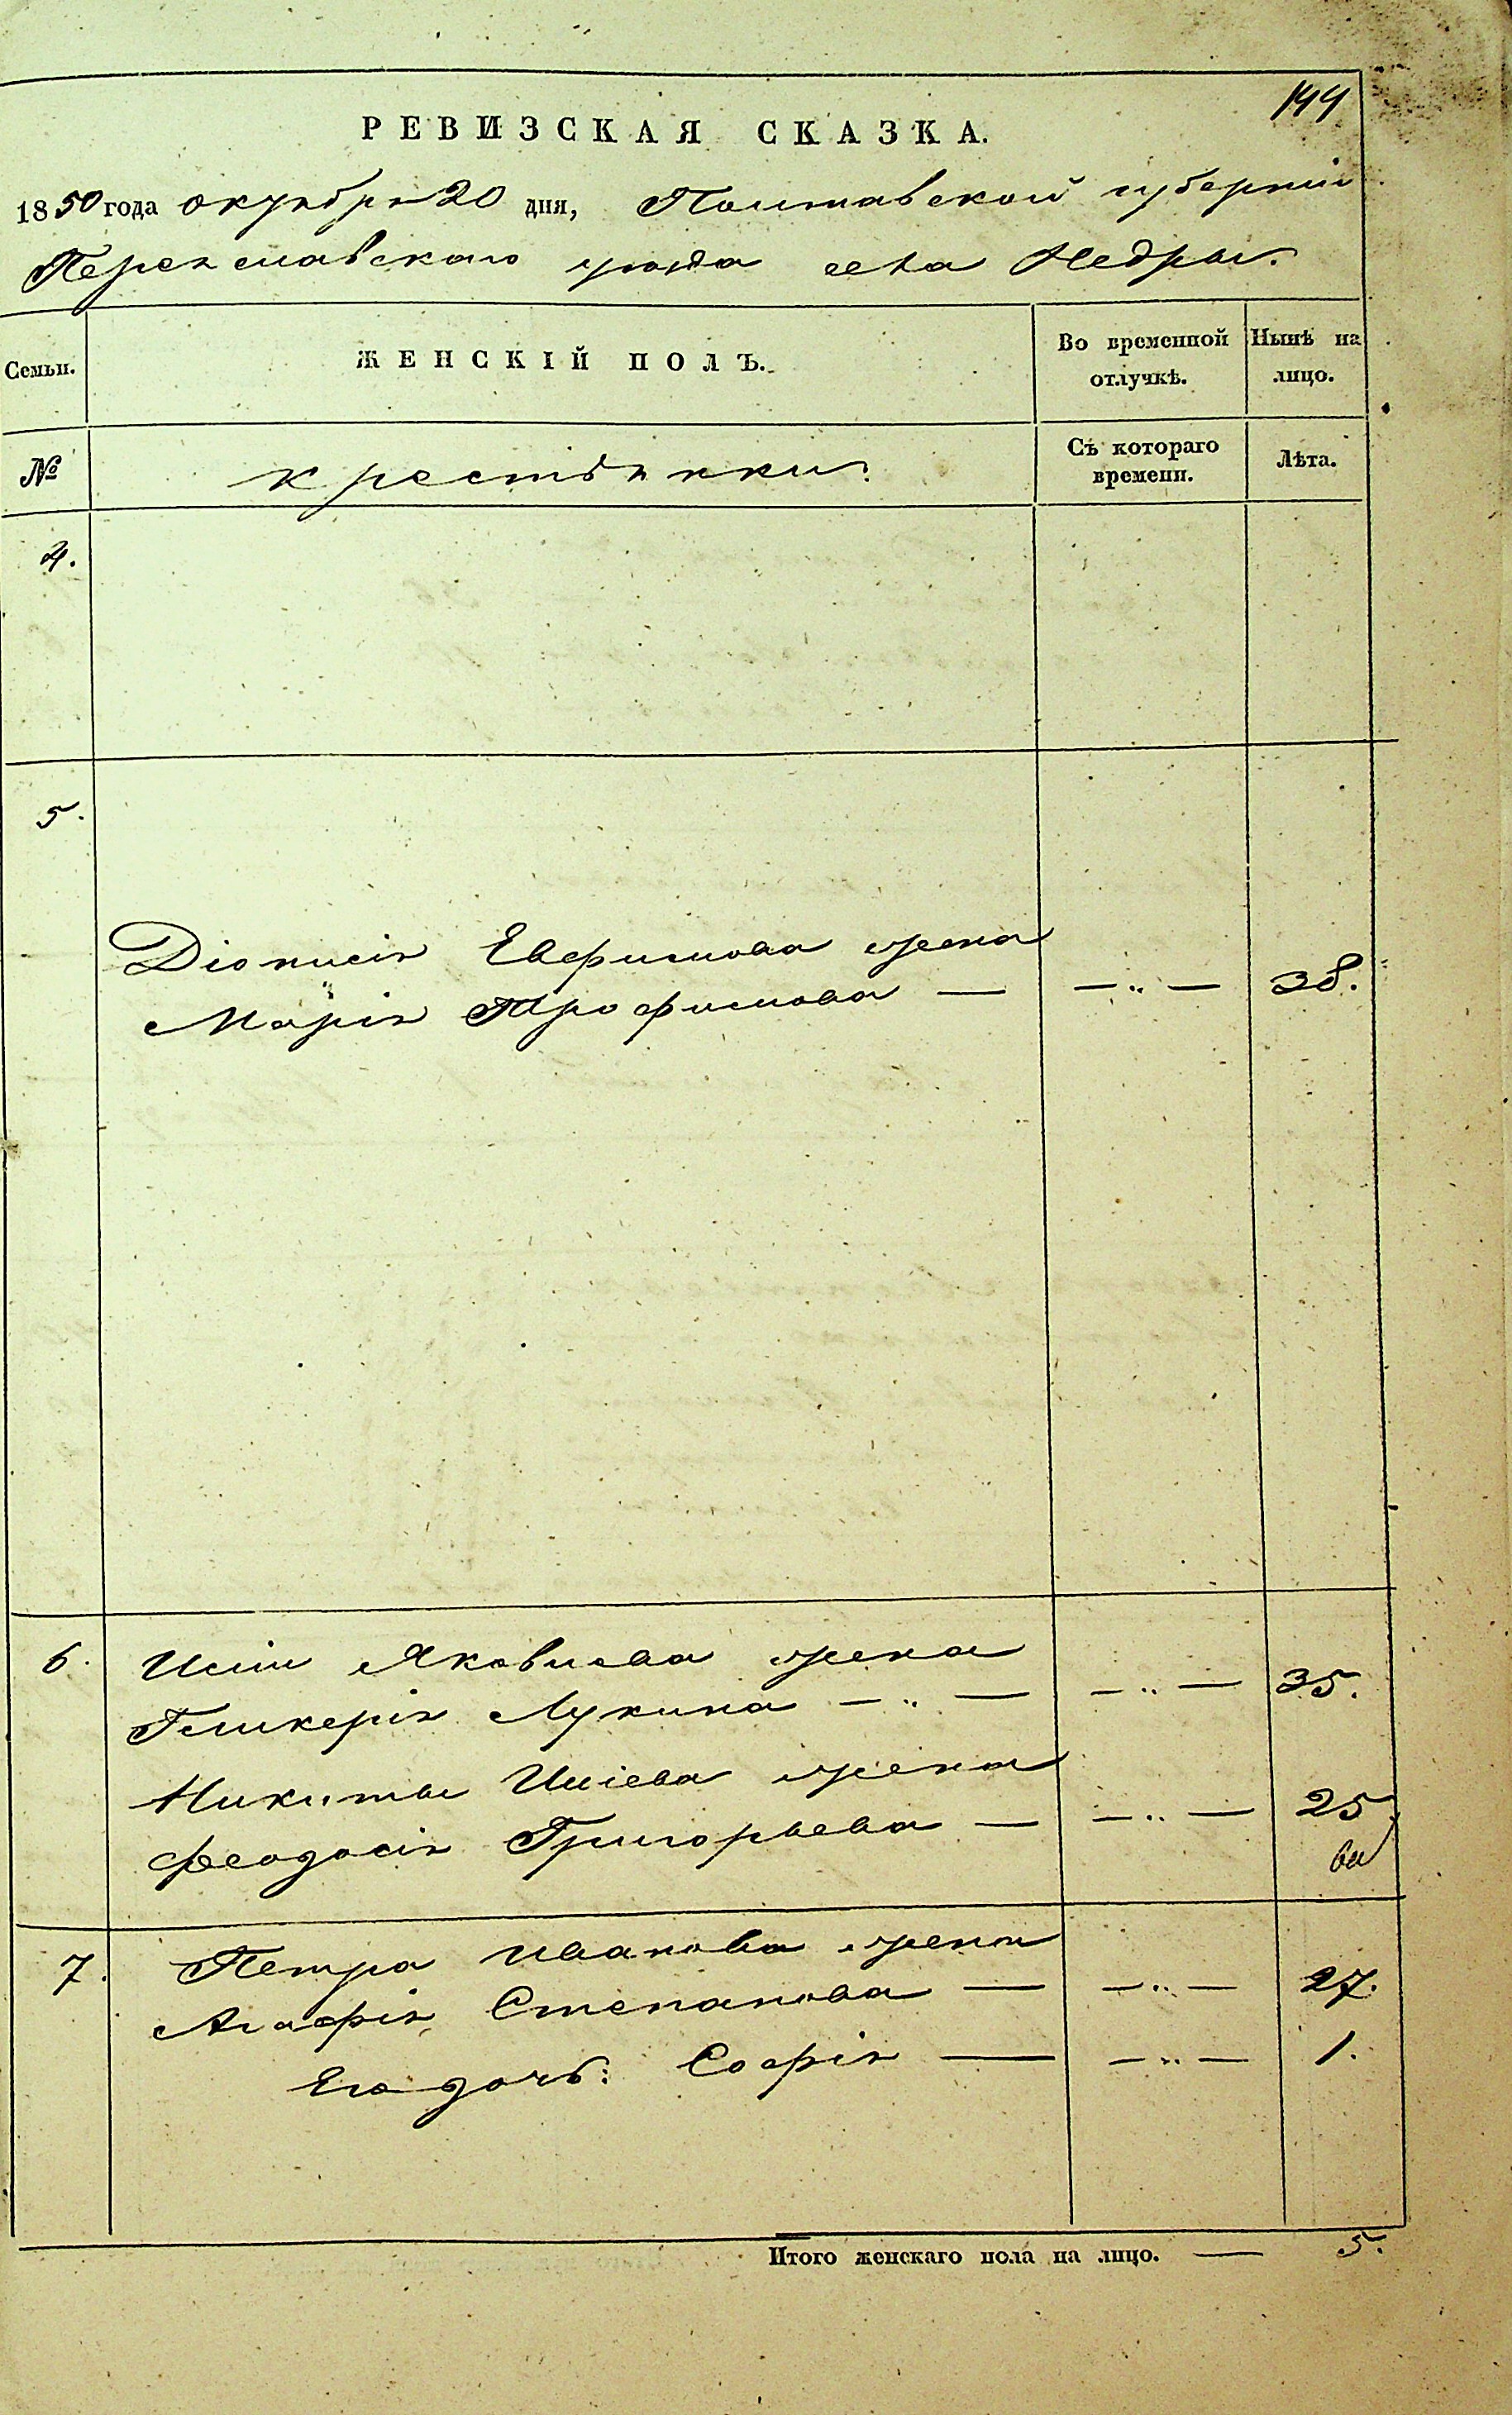 144
РЕВИЗСКАЯ СКАЗКА.
1850 года октября 20 дня, Полтавской губернии
Переяславскаго уезда села Недры.
Семьи.
ЖЕНСКІЙ ПОЛЪ.
Во временной отлучкѣ.
Нынѣ на лицо.
№
крестьянки.
Съ котораго времени.
Лѣта.
4.
5.
Діонисія Евфимова жена
Марія Трофимова — — „ — 38.
6. Иліи Яковлева жена
Гликерія Лукина — „ — — „ — 35.
Никиты Иліева жена
Феодосія Григорьева — — „ — 25
7. Петра Иванова жена
Агафія Степанова — — „ — 27.
Его дочь: Софія — — „ — 1.
Итого женскаго пола на лицо. — 5.